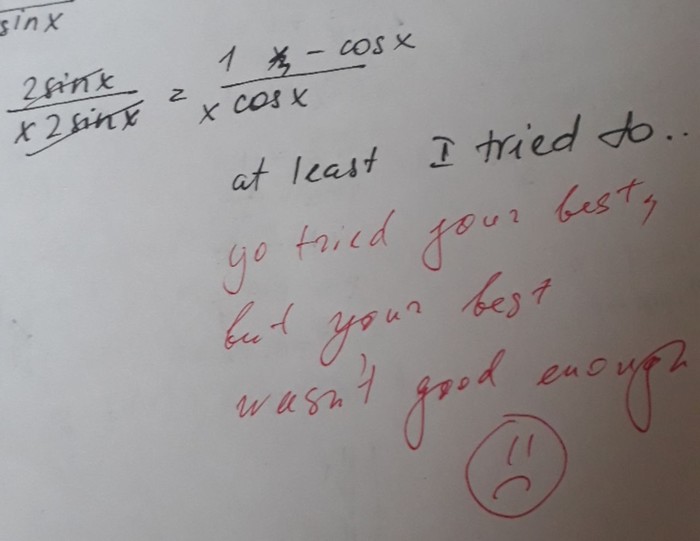 sinx
2sinx
x 2sinx
=
1 - cosx
x cosx
at least I tried to..
yo tried your best,
but your best
wasn't good enough